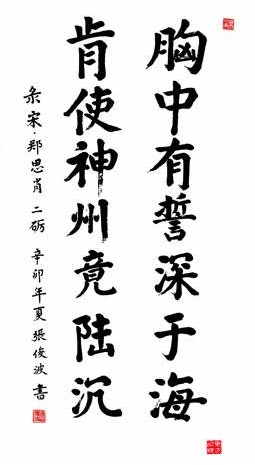 胸中有誓深于海
肯使神州竟陆沉
录宋·郑思肖二砺 辛卯年夏 張俊波書